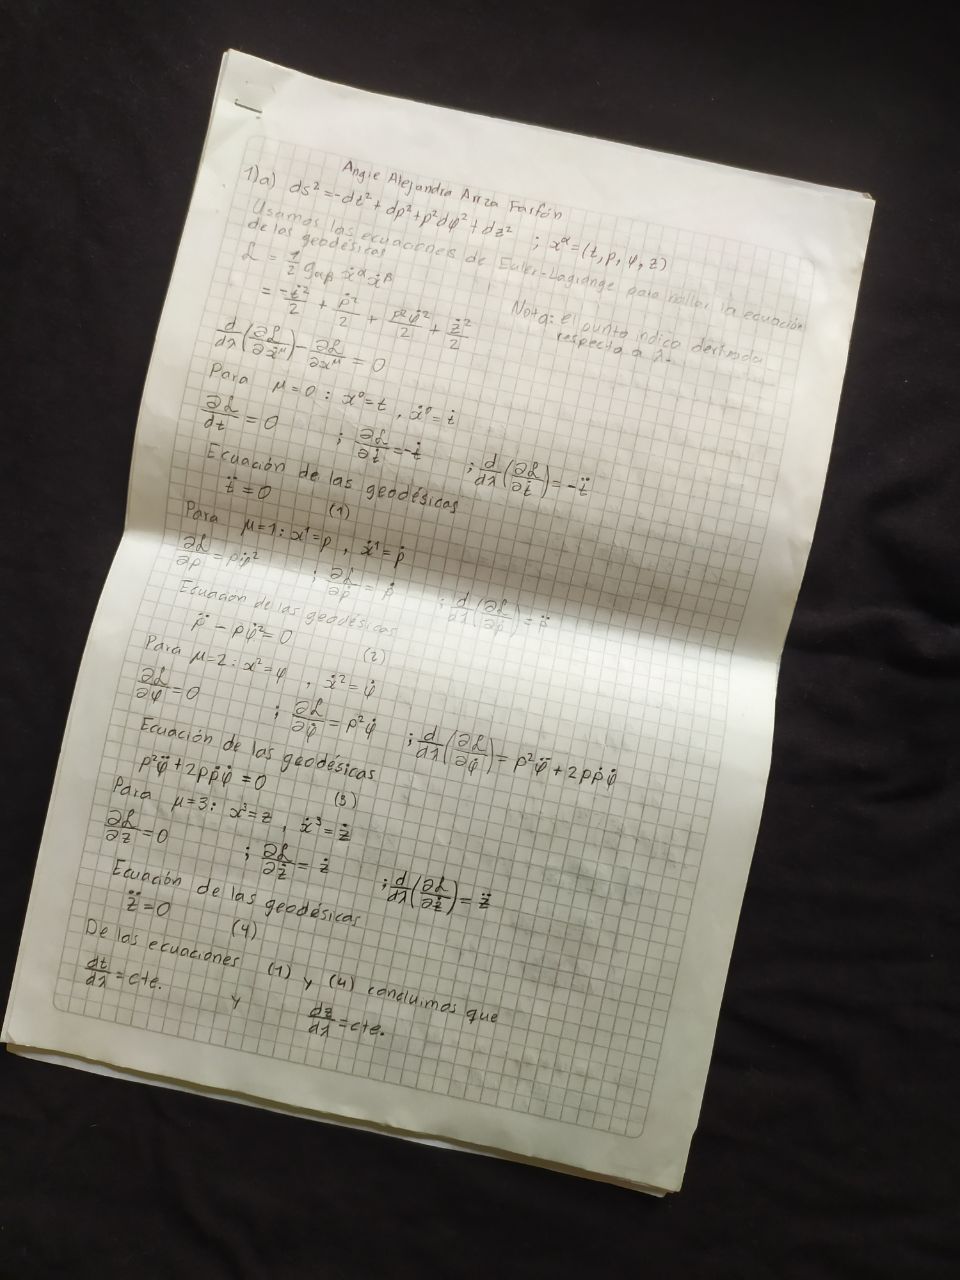 Angie Alejandra Ariza Farfón
1)a) ds² = -dt² + dρ² + ρ²dφ² + dz² ; xᵅ = (t, ρ, φ, z)
Usamos las ecuaciones de Euler-Lagrange para hallar la ecuación
de las geodésicas
ℒ = 1/2 gαβ ẋᵅ ẋᵝ
= -ṫ²/2 + ρ̇²/2 + ρ²φ̇²/2 + ż²/2
Nota: el punto indica derivada
respecto a λ.
d/dλ (∂ℒ/∂ẋᵘ) - ∂ℒ/∂xᵘ = 0
Para μ=0 : x⁰=t , ẋ⁰=ṫ
∂ℒ/dt = 0 ; ∂ℒ/∂ṫ = -ṫ ; d/dλ (∂ℒ/∂ṫ) = -ẗ
Ecuación de las geodésicas
ẗ = 0 (1)
Para μ=1 : x¹=ρ , ẋ¹=ρ̇
∂ℒ/∂ρ = ρφ̇² ; ∂ℒ/∂ρ̇ = ρ̇ ; d/dλ (∂ℒ/∂ρ̇) = ρ̈
Ecuación de las geodésicas
ρ̈ - ρφ̇² = 0 (2)
Para μ=2 : x²=φ , ẋ²=φ̇
∂ℒ/∂φ = 0 ; ∂ℒ/∂φ̇ = ρ²φ̇ ; d/dλ (∂ℒ/∂φ̇) = ρ²φ̈ + 2ρρ̇φ̇
Ecuación de las geodésicas
ρ²φ̈ + 2ρρ̇φ̇ = 0 (3)
Para μ=3 : x³=z , ẋ³=ż
∂ℒ/∂z = 0 ; ∂ℒ/∂ż = ż ; d/dλ (∂ℒ/∂ż) = z̈
Ecuación de las geodésicas
z̈ = 0 (4)
De las ecuaciones (1) y (4) concluimos que
dt/dλ = cte. y dz/dλ = cte.